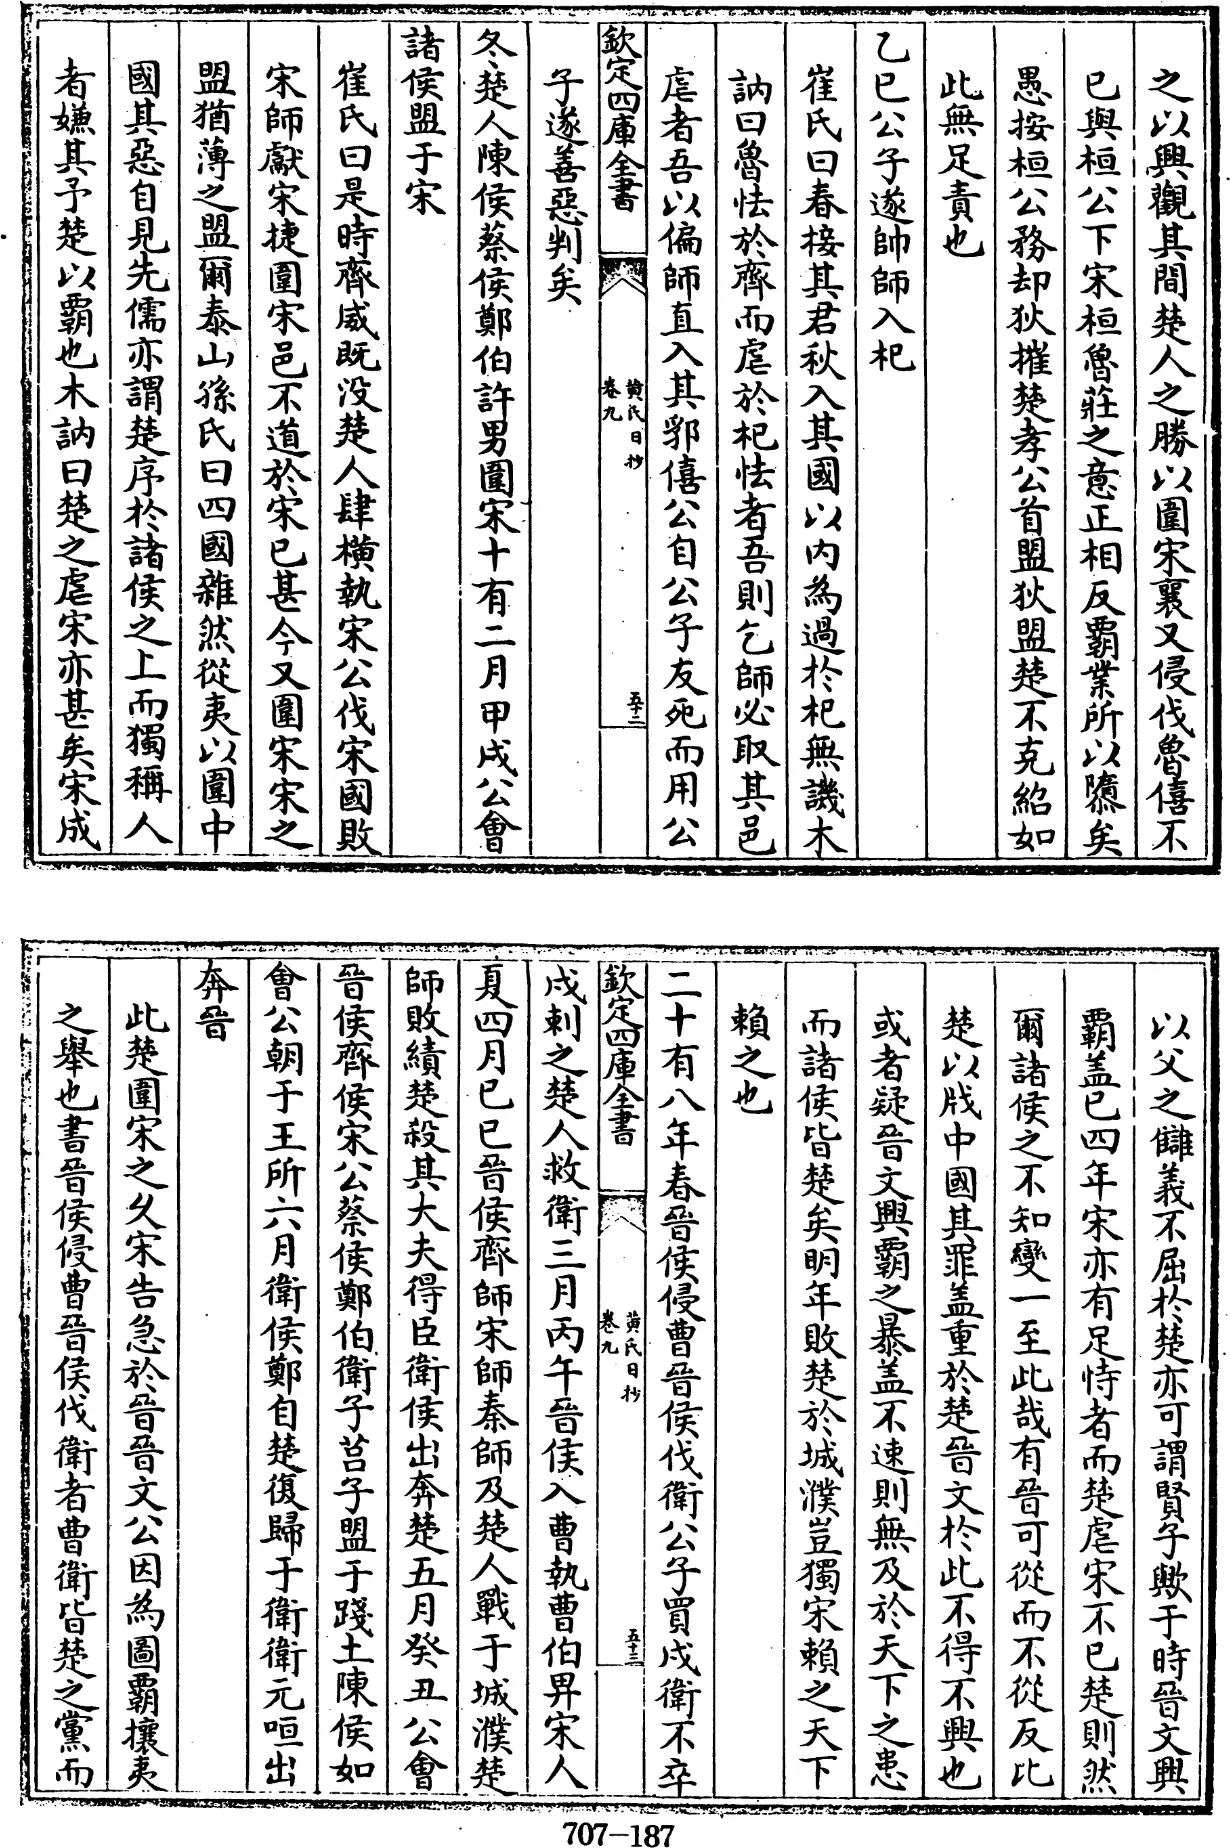 之以興觀其間楚人之勝以圍宋襄又侵伐魯僖不
已與桓公下宋桓魯莊之意正相反霸業所以隳矣
愚按桓公務却狄摧楚孝公首盟狄盟楚不克紹如
此無足責也
乙巳公子遂帥師入杞
崔氏曰春接其君秋入其國以内為過於杞無譏木
訥曰魯怯於齊而虐於杞怯者吾則乞師必取其邑
虐者吾以偏師直入其郛僖公自公子友死而用公
欽定四庫全書
黄氏日抄
卷九
五十二
子遂善惡判矣
冬楚人陳侯蔡侯鄭伯許男圍宋十有二月甲戌公會
諸侯盟于宋
崔氏曰是時齊威既没楚人肆横執宋公伐宋國敗
宋師獻宋捷圍宋邑不道於宋已甚今又圍宋宋之
盟猶薄之盟爾泰山孫氏曰四國雜然從夷以圍中
國其惡自見先儒亦謂楚序於諸侯之上而獨稱人
者嫌其予楚以霸也木訥曰楚之虐宋亦甚矣宋成
以父之讎義不屈於楚亦可謂賢乎歟于時晉文興
霸盖已四年宋亦有足恃者而楚虐宋不已楚則然
爾諸侯之不知變一至此哉有晉可從而不從反比
楚以戕中國其罪盖重於楚晉文於此不得不興也
或者疑晉文興霸之暴盖不速則無及於天下之患
而諸侯皆楚矣明年敗楚於城濮豈獨宋賴之天下
賴之也
二十有八年春晉侯侵曹晉侯伐衛公子買戍衛不卒
欽定四庫全書
黄氏日抄
卷九
五十三
戍刺之楚人救衛三月丙午晉侯入曹執曹伯畀宋人
夏四月己巳晉侯齊師宋師秦師及楚人戰于城濮楚
師敗績楚殺其大夫得臣衛侯出奔楚五月癸丑公會
晉侯齊侯宋公蔡侯鄭伯衛子莒子盟于踐土陳侯如
會公朝于王所六月衛侯鄭自楚復歸于衛衛元咺出
奔晉
此楚圍宋之久宋告急於晉晉文公因為圖霸攘夷
之舉也書晉侯侵曹晉侯伐衛者曹衛皆楚之黨而
707-187